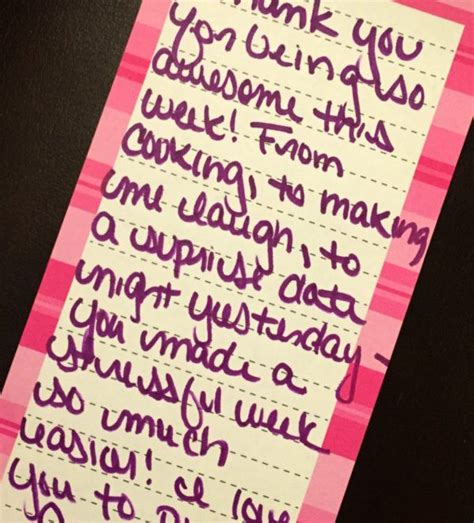 Thank you
for being so
awesome this
week! From
cooking, to making
me laugh, to
a suprise date
night yesterday -
you made a
stressful week
so much
easier! I love
you to